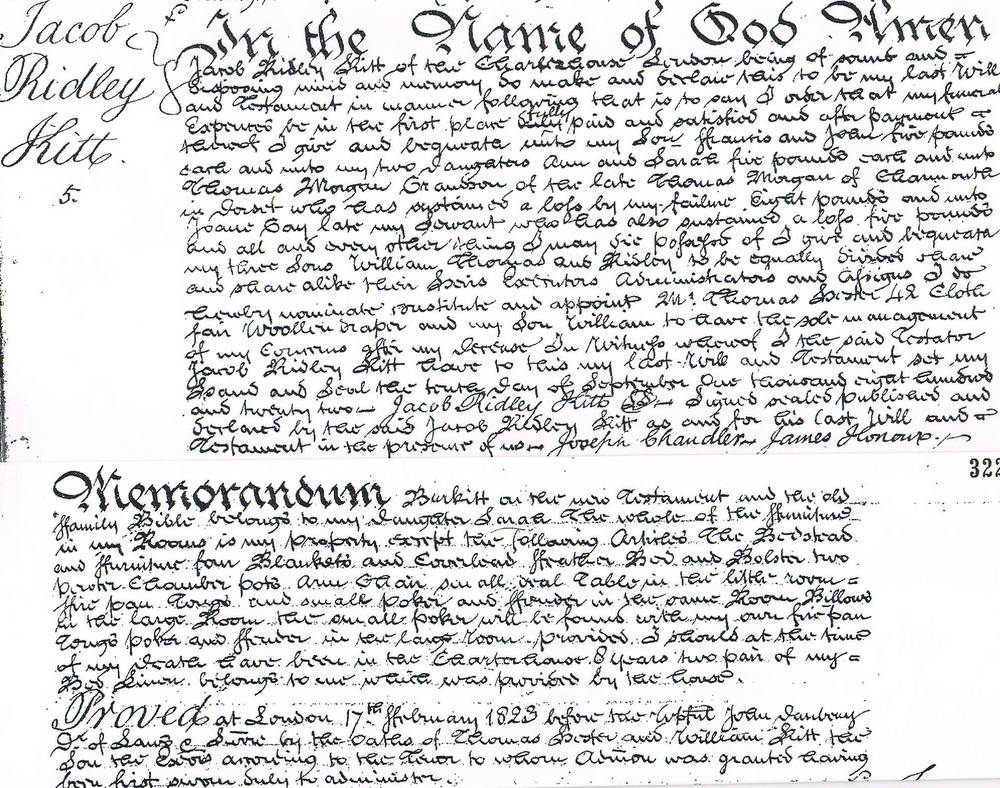 Jacob
Ridley
Kitt.
5.
In the Name of God Amen
Jacob Ridley Kitt of the Charterhouse London being of sound and
disposing mind and memory do make and declare this to be my last Will
and Testament in manner following that is to say I order that my funeral
Expences be in the first place fully paid and satisfied and after payment
thereof I give and bequeath unto my Son ffrancis and John five pounds
each and unto my two daughters Ann and Sarah five pounds each and unto
Thomas Morgan Grandson of the late Thomas Morgan of Charmouth
in Dorset who has sustained a loss by my failure Eight pounds and unto
Joane Gay late my Servant who has also sustained a loss five pounds
and all and every other thing I may die possessed of I give and bequeath
my three Sons William Thomas and Ridley to be equally divided share
and share alike their Heirs Executors Administrators and Assigns I do
hereby nominate constitute and appoint Mr. Thomas Hester 42 Cloth
fair Woollen draper and my Son William to have the sole management
of my Concerns after my decease In Witness whereof I the said Testator
Jacob Ridley Kitt have to this my last Will and Testament set my
Hand and Seal the tenth day of September One thousand eight hundred
and twenty two Jacob Ridley Kitt Signed sealed published and
declared by the said Jacob Ridley Kitt as and for his last Will and
Testament in the presence of us Joseph Chandler James Honour.
322
Memorandum Burkitt on the new Testament and the old
ffamily Bible belongs to my daughter Sarah The whole of the ffurniture
in my Rooms is my property except the following Articles The Bedstead
and ffurniture four Blankets and Coverlead ffeather Bed and Bolster two
pewter Chamber pots Arm Chair small deal Table in the little room
ffire pan tongs and small Poker and ffender in the same Room Billows
in the large Room the small poker will be found with my own fire pan
tongs poker and ffender in the large room provided I should at the time
of my death have been in the Charterhouse 8 years two pair of my
Bed Linen belongs to me which was provided by the house.
Proved at London 17th ffebruary 1823 before the Wpful John Daubeny
Dr of Laws & Surre by the Oaths of Thomas Hester and William Kitt the
Son the Exors according to the tenor to whom Admon was granted having
been first sworn duly to administer.